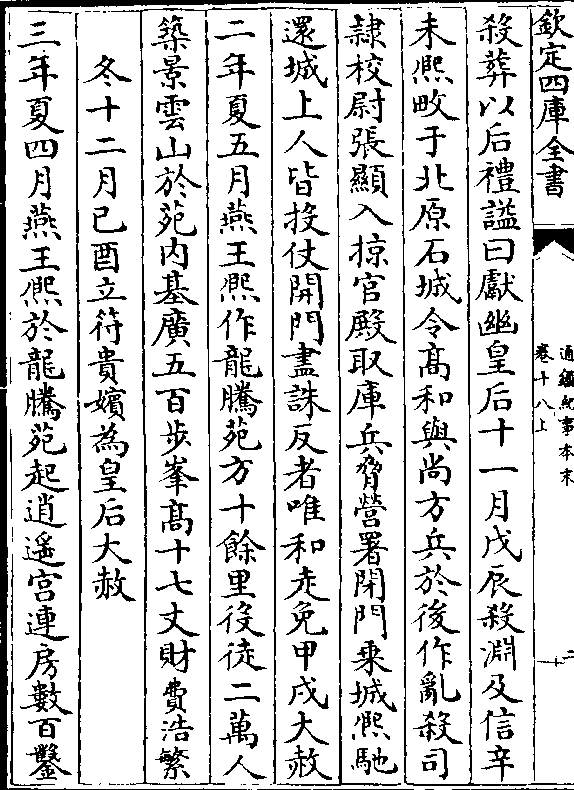 欽定四庫全書
通鑑紀事本末
卷十八上
二
殺葬以后禮諡曰獻幽皇后十一月戊辰殺淵及信辛
未熈畋于北原石城令髙和與尚方兵於後作亂殺司
隷校尉張顯入掠宫殿取庫兵脅營署閉門乗城熈馳
還城上人皆投仗開門盡誅反者唯和走免甲戌大赦
二年夏五月燕王熈作龍騰苑方十餘里役徒二萬人
築景雲山於苑内基廣五百步峯髙十七丈財費浩繁
冬十二月己酉立符貴嬪為皇后大赦
三年夏四月燕王熈於龍騰苑起逍遥宫連房數百鑿